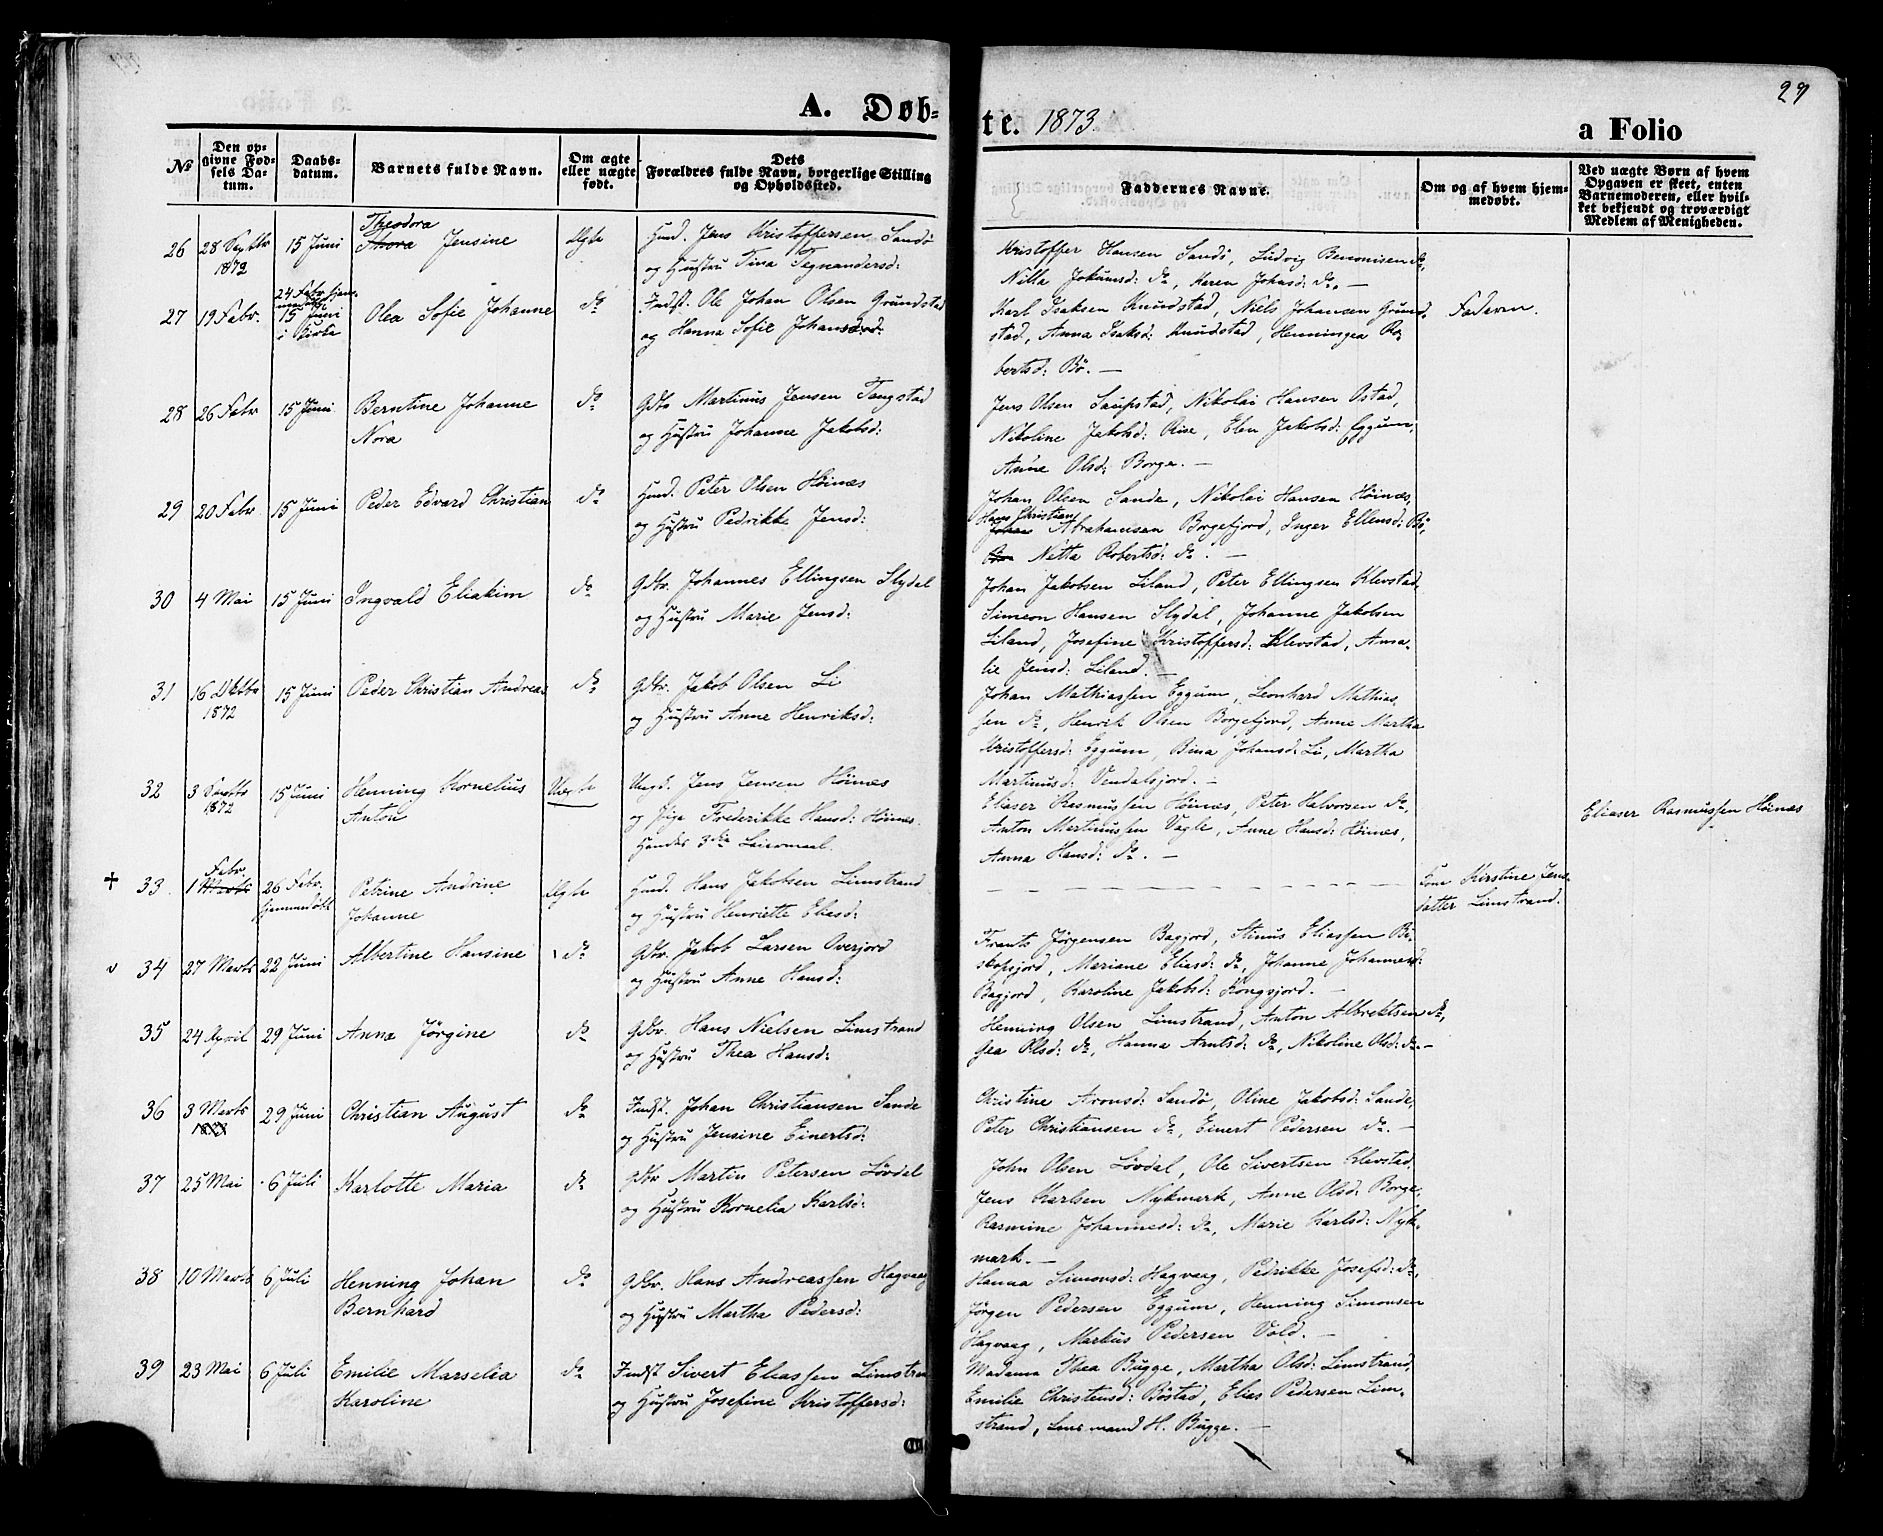 29
A. Døb-
te. 1873.
a Folio
No
Den op-
givne Fød-
sels Da-
tum.
Daabs-
datum.
Barnets fulde Navn.
Om ægte
eller uægte
født.
Dets
Forældres fulde Navn, borgerlige Stilling
og Opholdssted.
Faddernes Navne.
Om og af hvem hjem-
medøbt.
Ved uægte Børn af hvem
Opgaven er skeet, enten
Barnemoderen, eller hvil-
ket bekjendt og troværdigt
Medlem af Menigheden.
26 28 Septbr 15 Juni Theodora
Thora Jensine Ægte Huusd. Jens Kristoffersen Sandö
1872 og Hustru Tina Tegnandersd:
Kristoffer Hansen Sandö, Ludvig Benonisen do,
Nilla Jokumsd: do, Karen Johnsd: do. —
27 19 Febr. 24 Febr. hjem-
15 Juni
i Kirke
Olea Sofie Johanne do Indst. Ole Johan Olsen Grundstad
og Hanna Sofie Johansd:
Karl Isaksen Knudstad, Niels Johansen Grund-
stad, Anna Isaksd: Knudstad, Henningea Ro-
bertsd: Bö. —
Faderen.
28 26 Febr 15 Juni Berntine Johanne do Gdbr Martinus Jensen Tangstad
Nora og Hustru Johanne Jakobsd:
Jens Olsen Saupstad, Nikolai Hansen Ostad,
Nikoline Jakobsd: Rise, Elen Jakobsd: Eggum,
Anne Olsd: Borge. —
29 20 Febr 15 Juni Peder Edvard Christian do Huusd: Peter Olsen Höinæs
og Hustru Pedrikke Jensd:
Johan Olsen Sande, Nikolai Hansen Höinæs,
Hans Christian
Johan Abrahamsen Borgefjord, Inger Ellensd: Bö,
Netta Robertsd: do. —
30 4 Mai 15 Juni Ingvald Eliakim do Gdbr. Johannes Ellingsen Slydal
og Hustru Marie Jensd:
Johan Jakobsen Liland, Peter Ellingsen Klevstad,
Simeon Hansen Slydal, Johanne Jakobsen
Liland, Josefine Kristoffersd: Klevstad, Ama-
lie Jensd: Liland. —
31 16 Oktbr 15 Juni Peder Christian Andreas do Gdbr. Jakob Olsen Li
1872 og Hustru Anne Henriksd:
Johan Mathiassen Eggum, Leonhard Mathias-
sen do, Henrik Olsen Borgefjord, Anne Martha
Kristoffersd: Eggum, Bina Johansd: Li, Martha
Martinusd: Vendalsjord. —
32 3 Septbr 15 Juni Henning Kornelius Uægte Ungk. Jens Jensen Höinæs
1872 Anton og Pige Frederikke Hansd: Höinæs.
Hendes 3die Leiermaal.
Eliaser Rasmussen Höinæs, Peter Halvorsen do,
Anton Martinussen Vagle, Anne Hansd: Höinæs,
Anna Hansd: do. —
Eliaser Rasmussen Höinæs
† 33. 1 Febr.
Marts 26 Febr.
hjemmedöbt
Petrine Andrine Ægte Huusd. Hans Jakobsen Limstrand
Johanne og Hustru Henriette Eliasd:
Kone Kirstine Jens-
datter Limstrand.
v 34 27 Marts 22 Juni Albertine Hansine do Gdbr. Jakob Larsen Overjord
og Hustru Anne Hansd:
Frants Jörgensen Bagjord, Stinus Eliassen Bi-
skopsjord, Mariane Eliasd: do, Johanne Johannesd:
Bagjord, Karoline Jakobsd: Kongsjord. —
35 24 April 29 Juni Anna Jörgine do Gdbr. Hans Nielsen Limstrand
og Hustru Thea Hansd:
Henning Olsen Limstrand, Anton Albrektsen do,
Gea Olsd: do, Hanna Arntsd: do, Nikoline Olsd: do. —
36 3 Marts 29 Juni Christian August do Indst. Johan Christiansen Sande
og Hustru Jensine Einertsd:
Christine Aronsd: Sandö, Oline Jakobsd: Sande,
Peter Christiansen do, Einert Pedersen do. —
37 25 Mai 6 Juli Karlotte Maria do Gdbr Martin Petersen Lövdal
og Hustru Kornelia Karlsd:
John Olsen Lövdal, Ole Sivertsen Klevstad,
Jens Karlsen Nykmark, Anne Olsd: Borge,
Rasmine Johannesd: do, Marie Karlsd: Nyk-
mark. —
38 10 Marts 6 Juli Henning Johan do Gdbr. Hans Andreassen Hagvaag
Bernhard og Hustru Martha Pedersd:
Hanna Simonsd: Hagvaag, Pedrikke Josefsd: do,
Jörgen Pedersen Eggum, Henning Simonsen
Hagvaag, Markus Pedersen Vold. —
39 23 Mai 6 Juli Emilie Marselia do Indst Sivert Eliassen Limstrand
Karoline og Hustru Josefine Kristoffersd:
Madama Thea Bugge, Martha Olsd: Limstrand,
Emilie Christensd: Böstad, Elias Pedersen Lim-
strand, Lensmand H. Bugge. —